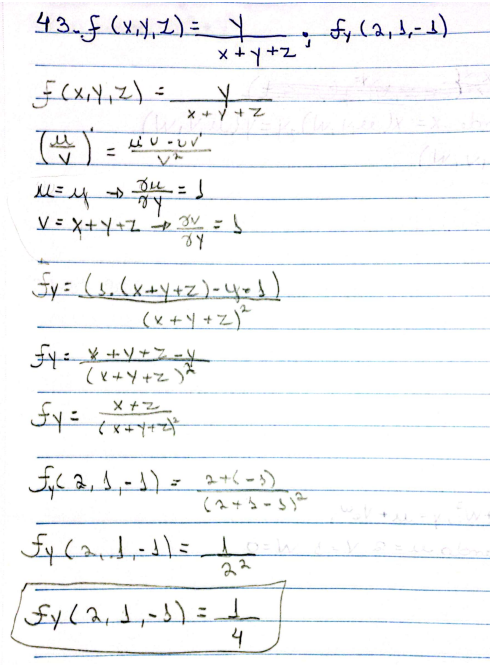 43. f (x,y,z) = y / (x+y+z) ; fy (2,1,-1)
f (x,y,z) = y / (x+y+z)
(u/v)' = (u'v - uv') / v²
u = y → ∂u/∂y = 1
v = x+y+z → ∂v/∂y = 1
fy = (1.(x+y+z)-y·1) / (x+y+z)²
fy = (x+y+z-y) / (x+y+z)²
fy = (x+z) / (x+y+z)²
fy(2,1,-1) = (2+(-1)) / (2+1-1)²
fy (2,1,-1) = 1 / 2²
fy (2,1,-1) = 1 / 4